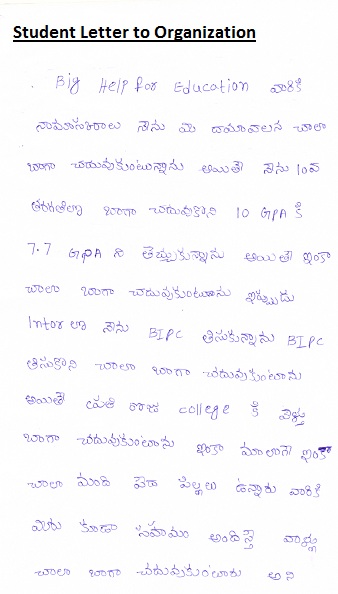 Student Letter to Organization
Big Help for Education వారికి
నామసకారాలు నేను మి దయావలన చాలా
బాగా చదువుకుంటున్నాను అయితే నేను 10వ
తరగతిలొ బాగా చదువుకొని 10 GPA కి
7.7 GPA ని తెచ్చుకున్నాను అయితే ఇంకా
చాలా బాగా చదువుకుంటాను ఇప్పుడు
Intor లొ నేను BIPC తిసుకున్నాను BIPC
తిసుకొని చాలా బాగా చదువుకుంటాను
అయితే ప్రతి రోజు college కి వెళ్తు
బాగా చదువుకుంటాను ఇంకా మాలాగె ఇంకా
చాలా మంది పేద పిల్లలు ఉన్నారు వారికి
మిరు కూడా సహాయం అందిస్తె వాళ్లు
చాలా బాగా చదువుకుంటారు అని